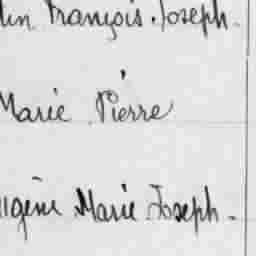 François Joseph.
Marie Pierre
Marie Joseph.